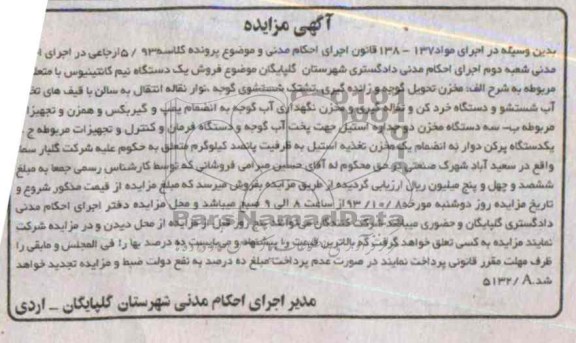 آگهی مزایده
بدین وسیله در اجرای مواد ۱۳۷ - ۱۳۸ قانون اجرای احکام مدنی و موضوع پرونده کلاسه ۹۳ / ۵ ارجاعی در اجرای
مدنی شعبه دوم اجرای احکام مدنی دادگستری شهرستان گلپایگان موضوع فروش یک دستگاه نیم کانتینیوس با متعلقات
مربوطه به شرح الف: مخزن تحویل گوجه و زانده گیری تشتک شستشوی گوجه ،نوار نقاله انتقال به سالن با قیف های
آب شستشو و دستگاه خرد کن و تفاله گیری و مخزن نگهداری آب گوجه به انضمام پمپ و گیربکس و همزن و تجهیزات
مربوطه ب- سه دستگاه مخزن دو جداره استیل جهت پخت آب گوجه و دستگاه فرمان و کنترل و تجهیزات مربوطه ج-
یکدستگاه پرکن دوار به انضمام یک مخزن تغذیه استیل به ظرفیت پانصد کیلوگرم متعلق به حکوم علیه شرکت گلبار سما
واقع در سعید آباد شهرک صنعتی در حق محکوم له آقای حسین صرامی فروشانی که توسط کارشناس رسمی جمعا به مبلغ
ششصد و چهل و پنج میلیون ریال ارزیابی گردیده از طریق مزایده بفروش میرسد که مبلغ مزایده از قیمت مذکور شروع و
تاریخ مزایده روز دوشنبه مورخه ۹۳/۱۰/۸ از ساعت ۸ الی ۹ صبح میباشد و محل مزایده دفتر اجرای احکام مدنی
دادگستری گلپایگان و حضوری میباشد شرکت کنندگان می‌توانند پنج روز قبل از مزایده از محل دیدن و در مزایده شرکت
نمایند مزایده به کسی تعلق خواهد گرفت که بالاترین قیمت را پیشنهاد و می‌بایست ده درصد بها را فی المجلس و مابقی را
ظرف مهلت مقرر قانونی پرداخت نمایند در صورت عدم پرداخت مبلغ ده درصد به نفع دولت ضبط و مزایده تجدید خواهد
شد.۵۱۳۲/A
مدیر اجرای احکام مدنی شهرستان گلپایگان – اردی
ParsNamadData